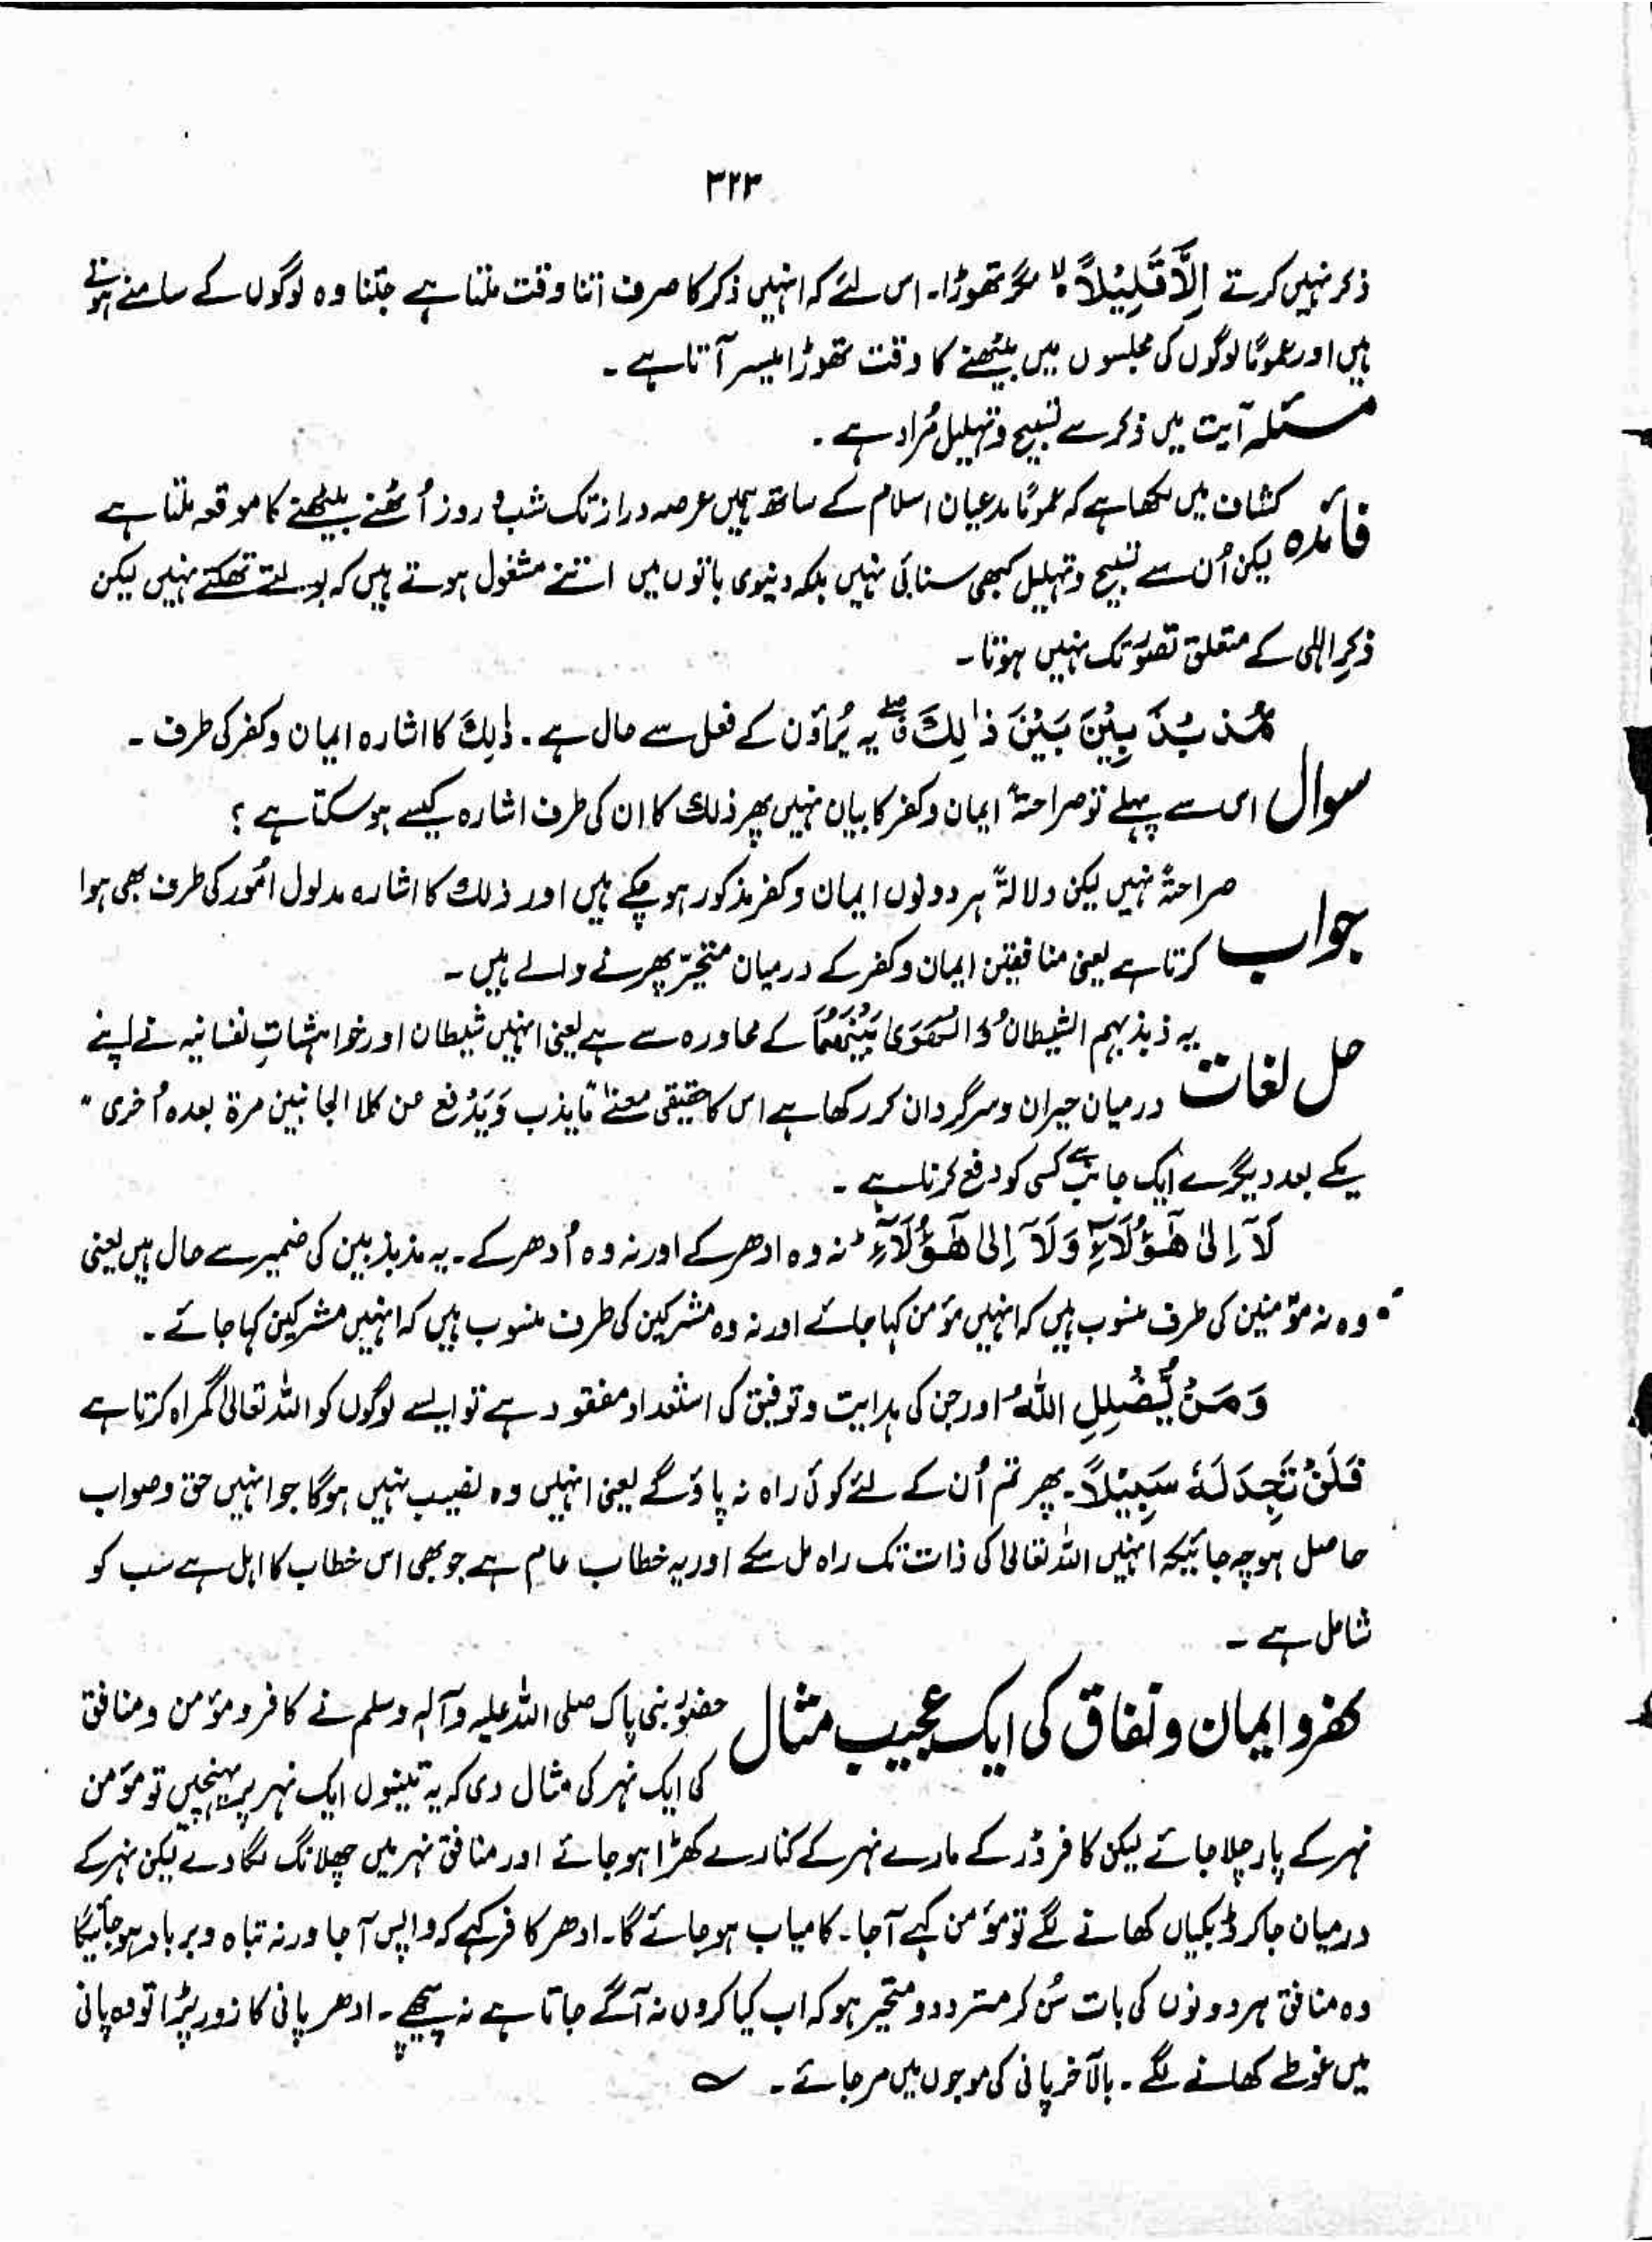 ۳۲۳
ذکر نہیں کرتے اِلَّا قَلِیْلاً ۙ مگر تھوڑا۔ اس لئے کہ انہیں ذکر کا صرف اتنا وقت ملتا ہے جتنا وہ لوگوں کے سامنے ہوتے
ہیں اور عموماً لوگوں کی مجلسوں میں بیٹھنے کا وقت تھوڑا میسر آتا ہے ۔
مسئلہ آیت میں ذکر سے تسبیح و تہلیل مُراد ہے ۔
فائدہ کشاف میں لکھا ہے کہ عموماً مدعیان اسلام کے ساتھ ہمیں عرصہ دراز تک شب و روز اُٹھنے بیٹھنے کا موقعہ ملتا ہے
لیکن اُن سے تسبیح و تہلیل کبھی سنائی نہیں بلکہ دنیوی باتوں میں اتنے مشغول ہوتے ہیں کہ بولتے تھکتے نہیں لیکن
ذکرِ الٰہی کے متعلق تصوّر تک نہیں ہوتا ۔
مُّذَبْذَبِیْنَ بَیْنَ ذٰلِكَ ۖ یہ یُرَآؤن کے فعل سے حال ہے ۔ ذٰلِكَ کا اشارہ ایمان و کفر کی طرف ۔
سوال اس سے پہلے تو صراحۃً ایمان و کفر کا بیان نہیں پھر ذلك کا ان کی طرف اشارہ کیسے ہو سکتا ہے ؟
جواب صراحۃً نہیں لیکن دلالۃً ہر دونوں ایمان و کفر مذکور ہو چکے ہیں اور ذلك کا اشارہ مدلول اُمور کی طرف بھی ہوا
کرتا ہے یعنی منافقین ایمان و کفر کے درمیان متحیّر پھرنے والے ہیں ۔
حل لغات یہ ذبذبہم الشیطانُ وَالْهَوٰی بَیْنَهُمَا کے محاورہ سے ہے یعنی انہیں شیطان اور خواہشاتِ نفسانیہ نے اپنے
درمیان حیران و سرگردان کر رکھا ہے اس کا حقیقی معنیٰ "مایذب وَیَدْفع من کلا الجانبین مرۃ بعدہ اُخری"
یکے بعد دیگرے ایک جانب سے کسی کو دفع کرنا ہے ۔
لَآ اِلٰی هٰٓؤُلَآءِ وَلَآ اِلٰی هٰٓؤُلَآءِ ؕ نہ وہ ادھر کے اور نہ وہ اُدھر کے ۔ یہ مذبذبین کی ضمیر سے حال ہیں یعنی
وہ نہ مؤمنین کی طرف منسوب ہیں کہ انہیں مؤمن کہا جائے اور نہ وہ مشرکین کی طرف منسوب ہیں کہ انہیں مشرکین کہا جائے ۔
وَمَنْ یُّضْلِلِ اللّٰهُ اور جن کی ہدایت و توفیق کی استعداد مفقود ہے تو ایسے لوگوں کو اللہ تعالیٰ گمراہ کرتا ہے
فَلَنْ تَجِدَ لَهٗ سَبِیْلاً۔ پھر تم اُن کے لئے کوئی راہ نہ پاؤگے یعنی انہیں وہ نصیب نہیں ہوگا جو انہیں حق و صواب
حاصل ہو چہ جائیکہ انہیں اللہ تعالیٰ کی ذات تک راہ مل سکے اور یہ خطاب عام ہے جو بھی اس خطاب کا اہل ہے سب کو
شامل ہے ۔
کفر و ایمان و نفاق کی ایک عجیب مثال حضور نبی پاک صلی اللہ علیہ وآلہ وسلم نے کافر و مؤمن و منافق
کی ایک نہر کی مثال دی کہ یہ تینوں ایک نہر پر پہنچیں تو مؤمن
نہر کے پار چلا جائے لیکن کافر ڈر کے مارے نہر کے کنارے کھڑا ہو جائے اور منافق نہر میں چھلانگ لگا دے لیکن نہر کے
درمیان جا کر ڈبکیاں کھانے لگے تو مؤمن کہے آجا۔ کامیاب ہو جائے گا۔ ادھر کافر کہے کہ واپس آ جا ورنہ تباہ و برباد ہو جائیگا
وہ منافق ہر دونوں کی بات سُن کر متردد و متحیر ہو کہ اب کیا کروں نہ آگے جاتا ہے نہ پیچھے ۔ ادھر پانی کا زور پڑا تو وہ پانی
میں غوطے کھانے لگے ۔ بالآخر پانی کی موجوں میں مر جائے ۔